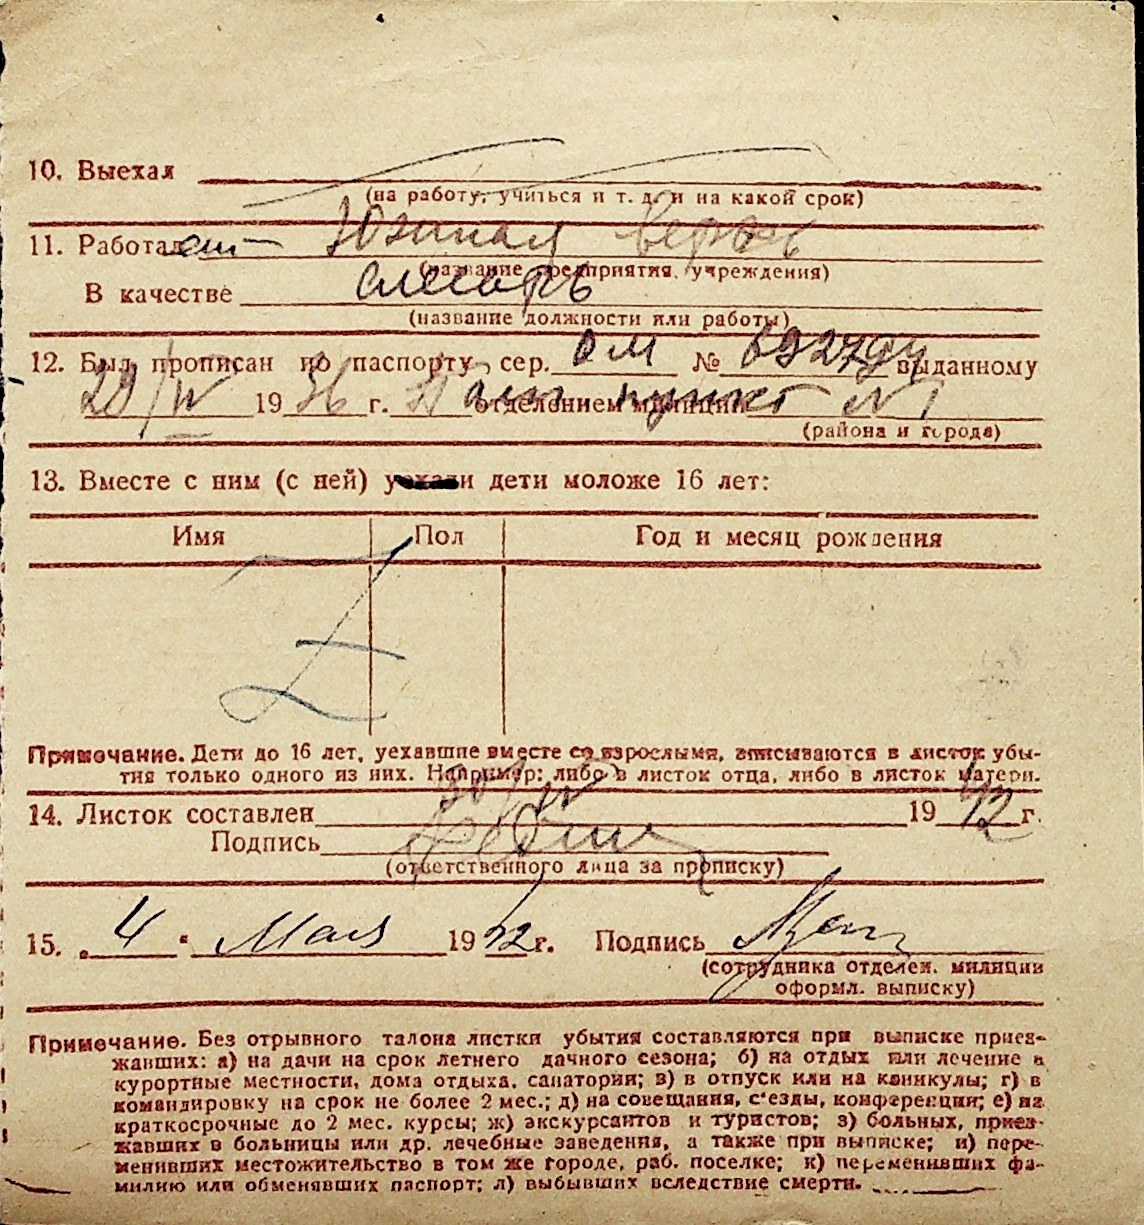 10. Выехал
(на работу, учиться и т. д. и на какой срок)
11. Работал Южная верфь
(название предприятия, учреждения)
В качестве слесарь
(название должности или работы)
12. Был прописан по паспорту сер. ОМ № 692794 выданному
20/IV 1936 г. пункт №1 отделением милиции
(района и города)
13. Вместе с ним (с ней) уехали дети моложе 16 лет:
Имя Пол Год и месяц рождения
Z
Примечание. Дети до 16 лет, уехавшие вместе со взрослыми, вписываются в листок убы-
тия только одного из них. Например: либо в листок отца, либо в листок матери.
14. Листок составлен 30/IV 1942 г.
Подпись
(ответственного лица за прописку)
15. „4“ Мая 1942 г. Подпись
(сотрудника отделен. милиции
оформл. выписку)
Примечание. Без отрывного талона листки убытия составляются при выписке приез-
жавших: а) на дачи на срок летнего дачного сезона; б) на отдых или лечение в
курортные местности, дома отдыха, санатории; в) в отпуск или на каникулы; г) в
командировку на срок не более 2 мес.; д) на совещания, с'езды, конференции; е) на
краткосрочные до 2 мес. курсы; ж) экскурсантов и туристов; з) больных, приез-
жавших в больницы или др. лечебные заведения, а также при выписке; и) пере-
менивших местожительство в том же городе, раб. поселке; к) переменивших фа-
милию или обменявших паспорт; л) выбывших вследствие смерти.